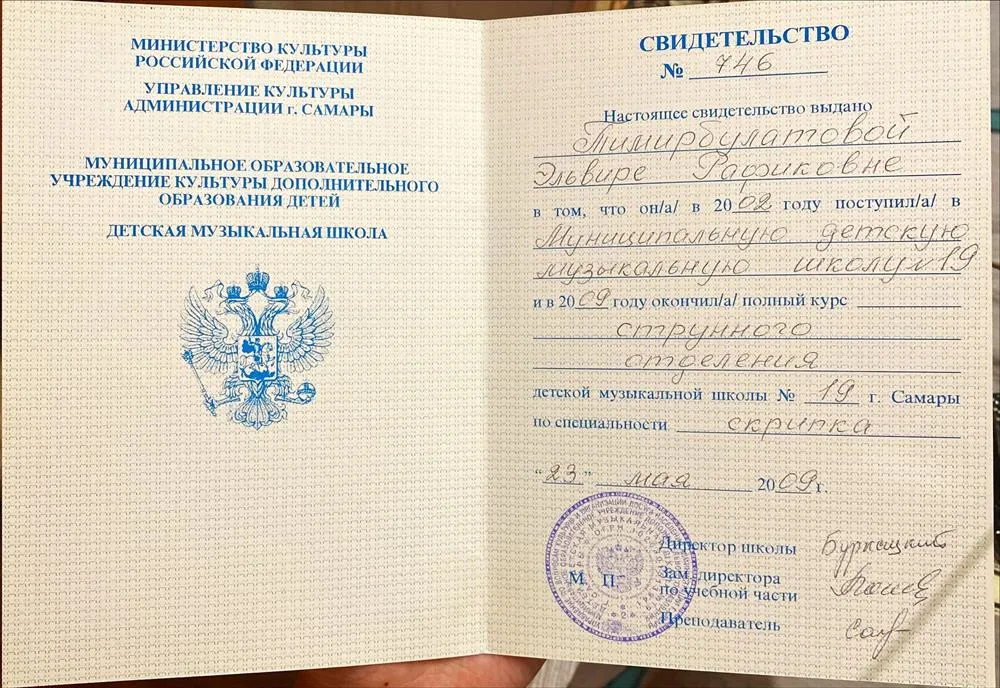 МИНИСТЕРСТВО КУЛЬТУРЫ
РОССИЙСКОЙ ФЕДЕРАЦИИ
УПРАВЛЕНИЕ КУЛЬТУРЫ
АДМИНИСТРАЦИИ г. САМАРЫ
МУНИЦИПАЛЬНОЕ ОБРАЗОВАТЕЛЬНОЕ
УЧРЕЖДЕНИЕ КУЛЬТУРЫ ДОПОЛНИТЕЛЬНОГО
ОБРАЗОВАНИЯ ДЕТЕЙ
ДЕТСКАЯ МУЗЫКАЛЬНАЯ ШКОЛА
СВИДЕТЕЛЬСТВО
№ 746
Настоящее свидетельство выдано
Тимирбулатовой
Эльвире Рафиковне
в том, что он/а/ в 2002 году поступил/а/ в
Муниципальную детскую
музыкальную школу №19
и в 2009 году окончил/а/ полный курс
струнного
отделения
детской музыкальной школы № 19 г. Самары
по специальности скрипка
"23" мая 2009 г.
Директор школы
М. П.
Зам. директора
по учебной части
Преподаватель